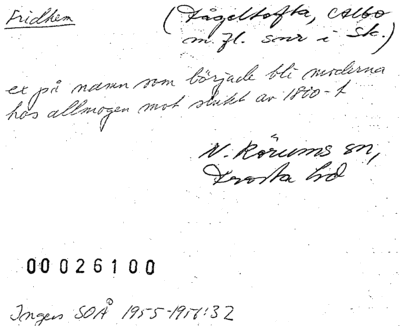 Fridhem
(Fågeltofta, Albo
m.fl. snr i Sk.)
ex på namn som började bli moderna
hos allmogen mot slutet av 1800-t
N. Rörums sn,
Frosta hd
00026100
Ingers SOÅ 1955-1957:32